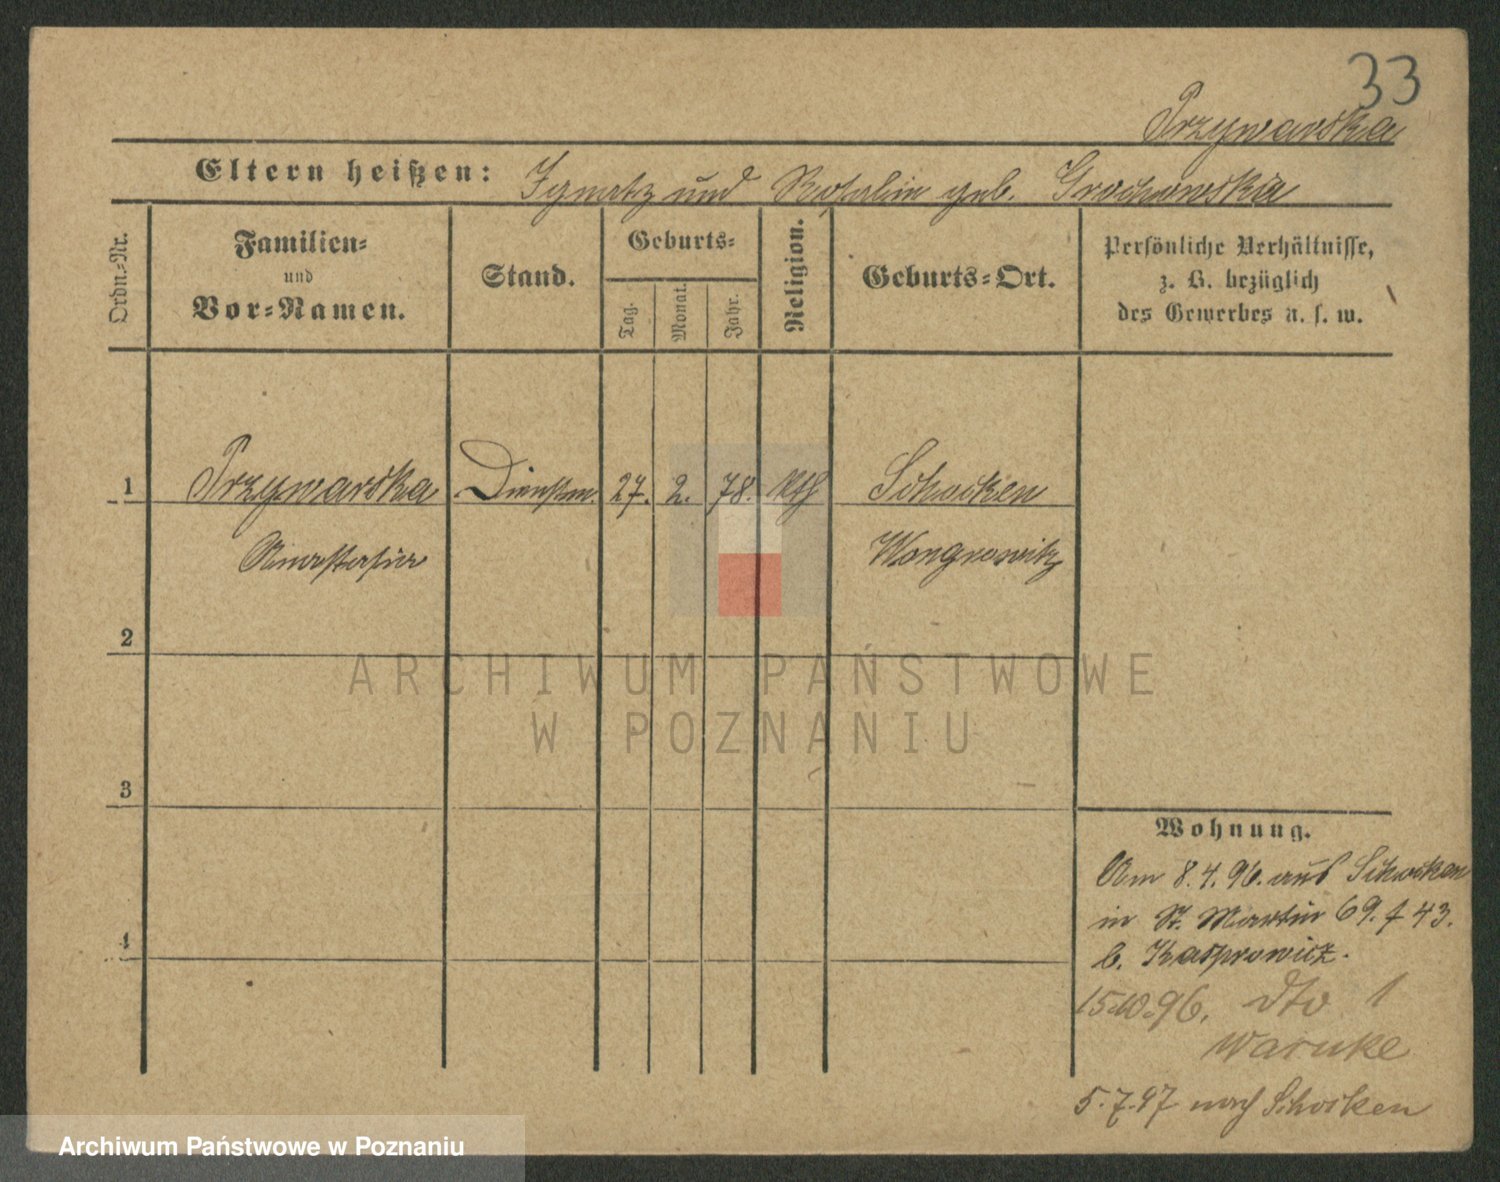 33
Przywarska
Eltern heißen: Ignatz und Rosalie geb. Grochowska
Ordn.-Nr.
Familien-
und
Vor-Namen.
Stand.
Geburts-
Tag.
Monat.
Jahr.
Religion.
Geburts-Ort.
Persönliche Verhältnisse,
z. B. bezüglich
des Gewerbes u. s. w.
1 Przywarska Dienstm. 27. 2. 78. kth Schocken
Anastasia Wongrowitz
2
3
4
ARCHIWUM PAŃSTWOWE
W POZNANIU
Wohnung.
Am 8.4.96. aus Schocken
in St. Martin 69. f 43.
b. Kasprowicz.
15.10.96. dto 1
Warnke
5.7.97 nach Schocken
Archiwum Państwowe w Poznaniu